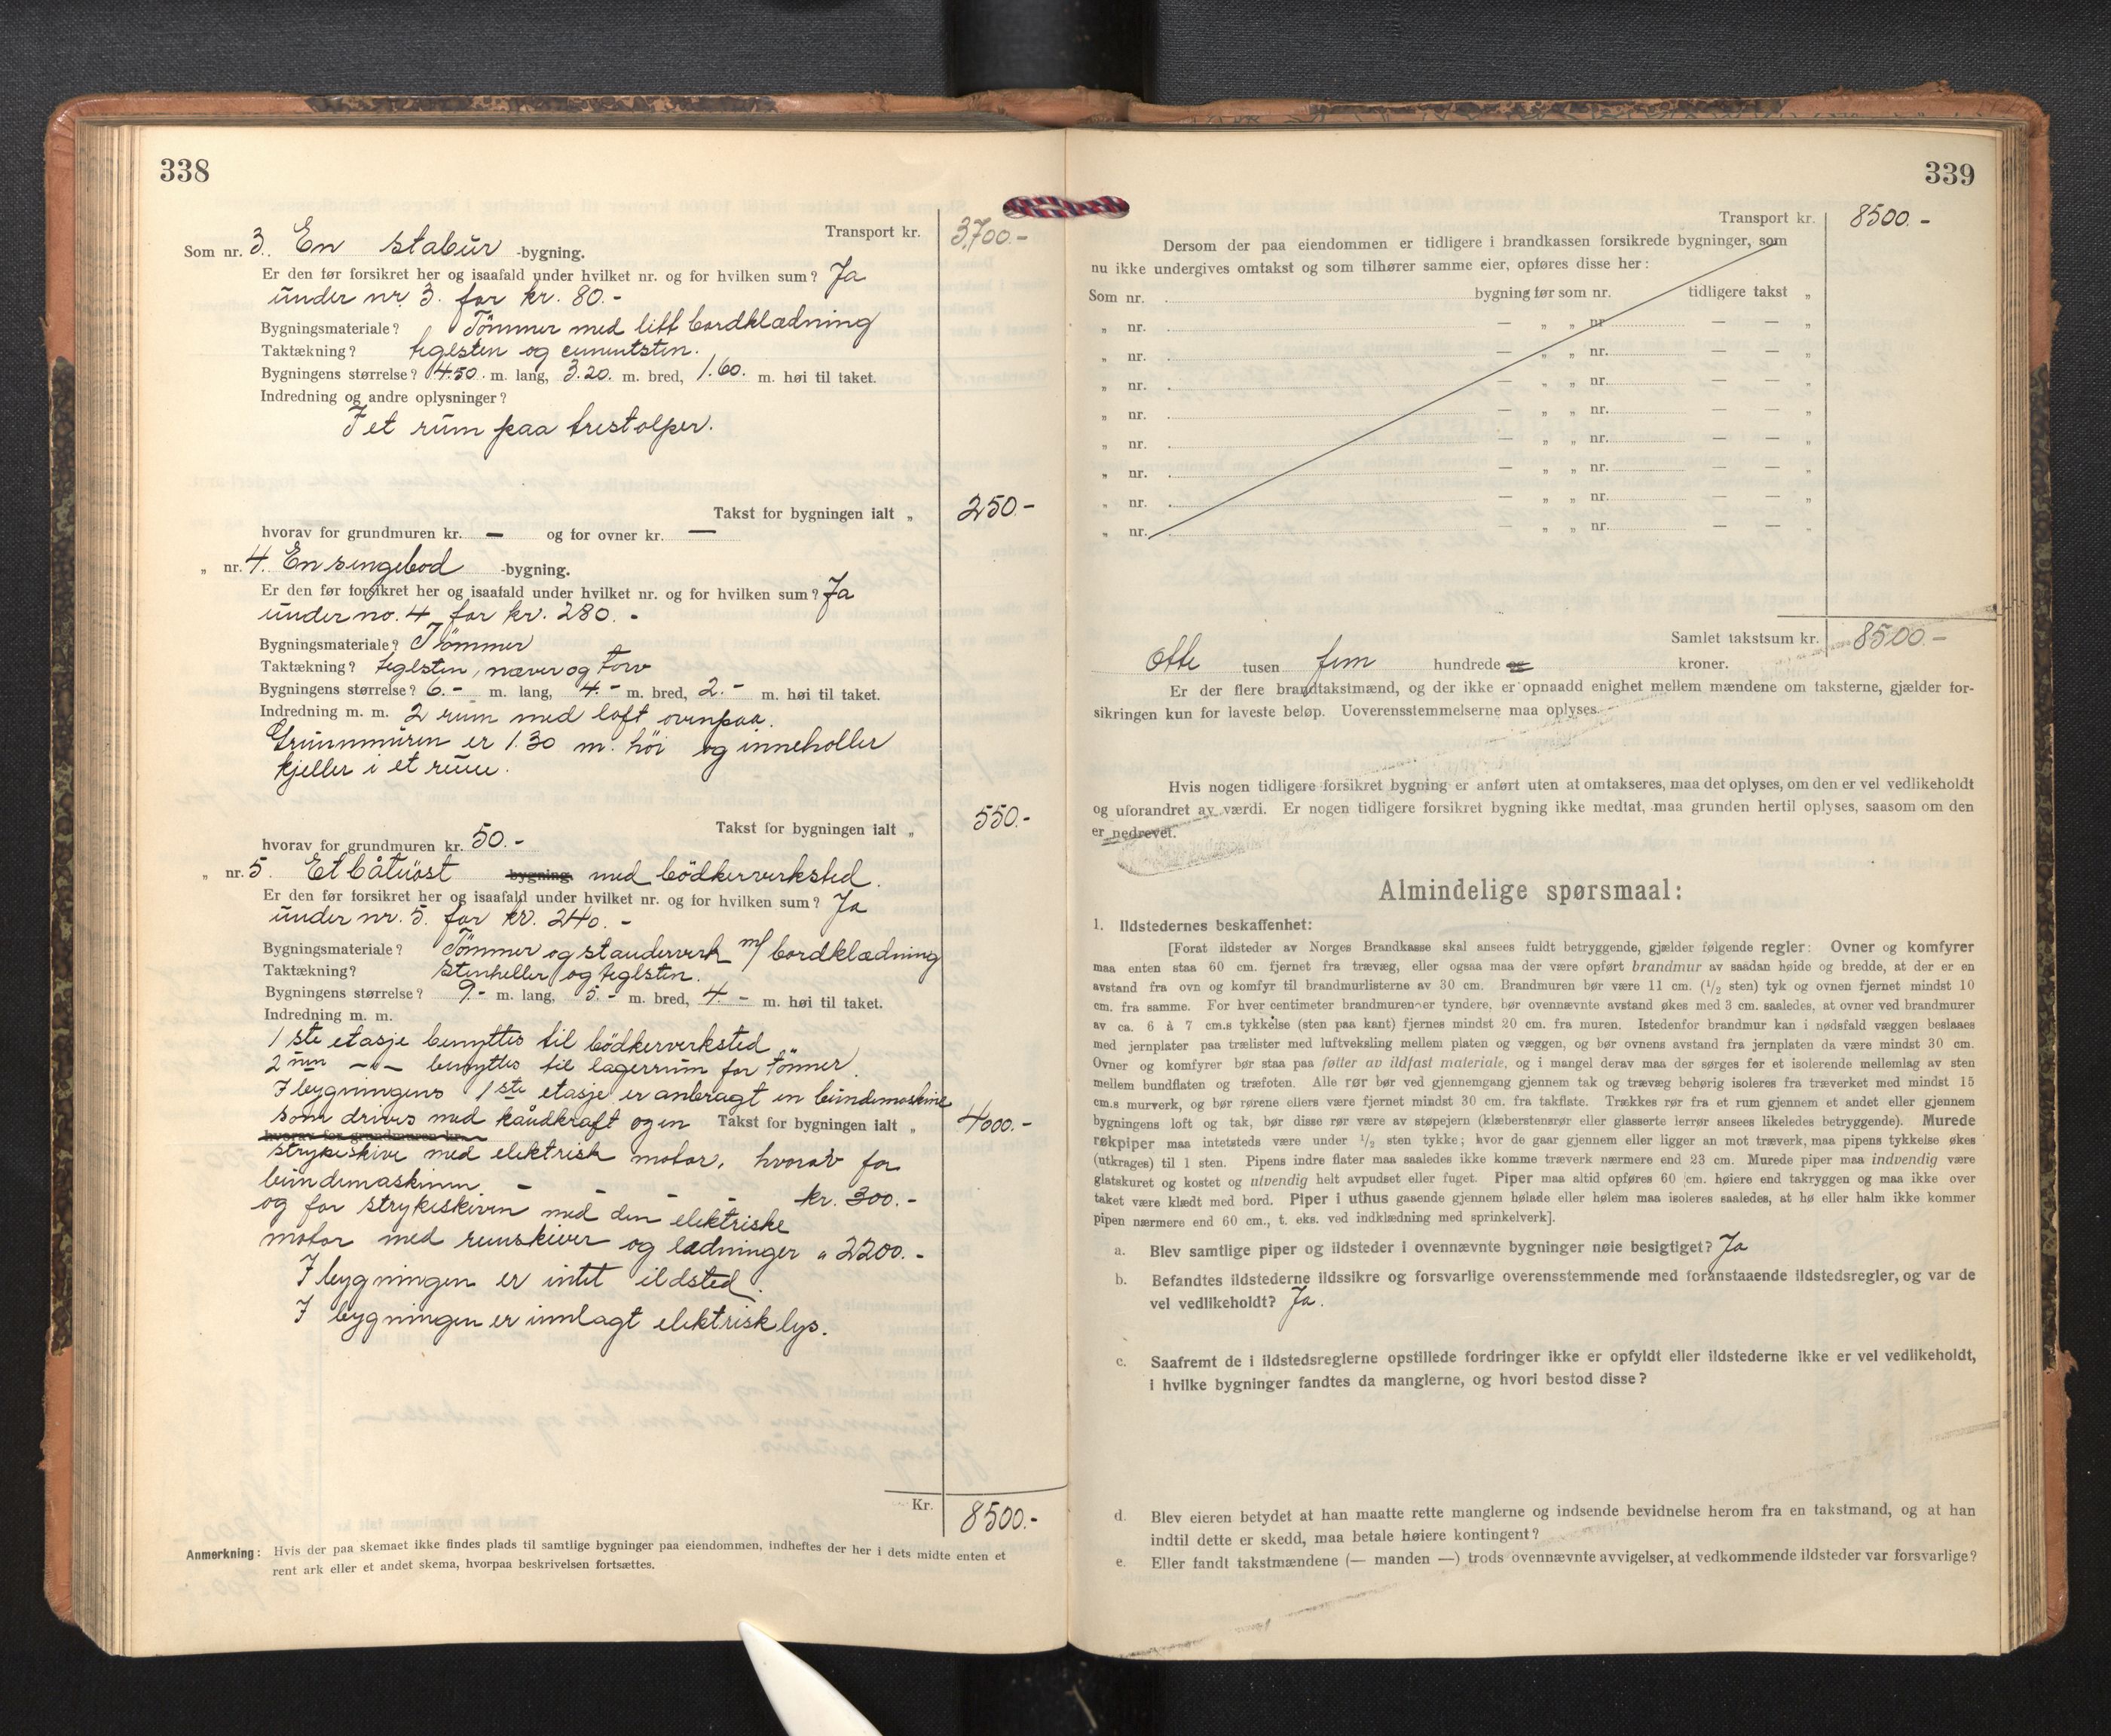 338
Transport kr. 3,700.-
Som nr. 3. En stabur -bygning.
Er den før forsikret her og isaafald under hvilket nr. og for hvilken sum? Ja
under nr. 3. for kr. 80.-
Bygningsmateriale? Tömmer med litt bordklædning
Taktækning? teglsten og cementsten.
Bygningens størrelse? 4.50. m. lang, 3.20. m. bred, 1.60. m. høi til taket.
Indredning og andre oplysninger?
I et rum paa trestolper.
Takst for bygningen ialt „ 250.-
hvorav for grundmuren kr. — og for ovner kr. —
„ nr. 4. En sengebod -bygning.
Er den før forsikret her og isaafald under hvilket nr. og for hvilken sum? Ja
under no. 4 for kr. 280. -
Bygningsmateriale? Tömmer
Taktækning? teglsten, næver og torv
Bygningens størrelse? 6.- m. lang, 4.- m. bred, 2.- m. høi til taket.
Indredning m. m. 2 rum med loft ovenpaa.
Grunnmuren er 1.30 m. höi og inneholler
kjeller i et rum.
Takst for bygningen ialt „ 550.-
hvorav for grundmuren kr. 50.-
„ nr. 5. Et båtnöst bygning. med bödkerverksted.
Er den før forsikret her og isaafald under hvilket nr. og for hvilken sum? Ja
under nr. 5. for kr. 240. -
Bygningsmateriale? Tömmer og stenderverk m/ bordklædning
Taktækning? stenheller og teglsten.
Bygningens størrelse? 9.- m. lang, 5.- m. bred, 4.- m. høi til taket.
Indredning m. m.
1 ste etasje benyttes til bödkerverksted
2 nen -"- benyttes til lagerrum for tönner.
I bygningens 1 ste etasje er anbragt en bundemaskine
som drives med håndkraft og en Takst for bygningen ialt „ 4000.-
hvorav for grundmuren kr.
strykeskive med elektrisk motor, hvorav for
bundemaskinen - - - - kr. 300.-
og for strykeskiven med den elektriske
motor med remskiver og ledninger " 2200.-
I bygningen er intet ildsted.
I bygningen er innlagt elektrisk lys.
Kr. 8500.-
Anmerkning: Hvis der paa skemaet ikke findes plads til samtlige bygninger paa eiendommen, indheftes der her i dets midte enten et
rent ark eller et andet skema, hvorpaa beskrivelsen fortsættes.
339
Transport kr. 8500.-
Dersom der paa eiendommen er tidligere i brandkassen forsikrede bygninger, som
nu ikke undergives omtakst og som tilhører samme eier, opføres disse her:
Som nr. bygning før som nr. tidligere takst „
„ nr. — „ „ nr. — — „
„ nr. — „ „ nr. — — „
„ nr. — „ „ nr. — — „
„ nr. — „ „ nr. — — „
„ nr. — „ „ nr. — — „
„ nr. — „ „ nr. — — „
„ nr. — „ „ nr. — — „
„ nr. — „ „ nr. — — „
Samlet takstsum kr. 8500.-
Otte tusen fem hundrede og kroner.
Er der flere brandtakstmænd, og der ikke er opnaadd enighet mellem mændene om taksterne, gjælder for-
sikringen kun for laveste beløp. Uoverensstemmelserne maa oplyses.
Hvis nogen tidligere forsikret bygning er anført uten at omtakseres, maa det oplyses, om den er vel vedlikeholdt
og uforandret av værdi. Er nogen tidligere forsikret bygning ikke medtat, maa grunden hertil oplyses, saasom om den
er nedrevet.
Almindelige spørsmaal:
1. Ildstedernes beskaffenhet:
[Forat ildsteder av Norges Brandkasse skal ansees fuldt betryggende, gjælder følgende regler: Ovner og komfyrer
maa enten staa 60 cm. fjernet fra trævæg, eller ogsaa maa der være opført brandmur av saadan høide og bredde, at der er en
avstand fra ovn og komfyr til brandmurlisterne av 30 cm. Brandmuren bør være 11 cm. (1/2 sten) tyk og ovnen fjernet mindst 10
cm. fra samme. For hver centimeter brandmuren er tyndere, bør ovennævnte avstand økes med 3 cm. saaledes, at ovner ved brandmurer
av ca. 6 à 7 cm.s tykkelse (sten paa kant) fjernes mindst 20 cm. fra muren. Istedenfor brandmur kan i nødsfald væggen beslaaes
med jernplater paa trælister med luftveksling mellem platen og væggen, og bør ovnens avstand fra jernplaten da være mindst 30 cm.
Ovner og komfyrer bør staa paa føtter av ildfast materiale, og i mangel derav maa der sørges for et isolerende mellemlag av sten
mellem bundflaten og træfoten. Alle rør bør ved gjennemgang gjennem tak og trævæg behørig isoleres fra træverket med mindst 15
cm.s murverk, og bør rørene ellers være fjernet mindst 30 cm. fra takflate. Trækkes rør fra et rum gjennem et andet eller gjennem
bygningens loft og tak, bør disse rør være av støpejern (klæberstensrør eller glasserte lerrør ansees likeledes betryggende). Murede
røkpiper maa intetsteds være under 1/2 sten tykke; hvor de gaar gjennem eller ligger an mot træverk, maa pipens tykkelse økes
(utkrages) til 1 sten. Pipens indre flater maa saaledes ikke komme træverk nærmere end 23 cm. Murede piper maa indvendig være
glatskuret og kostet og utvendig helt avpudset eller fuget. Piper maa altid opføres 60 cm. høiere end takryggen og maa ikke over
taket være klædt med bord. Piper i uthus gaaende gjennem hølade eller hølem maa isoleres saaledes, at hø eller halm ikke kommer
pipen nærmere end 60 cm., t. eks. ved indklædning med sprinkelverk].
a. Blev samtlige piper og ildsteder i ovennævnte bygninger nøie besigtiget? Ja
b. Befandtes ildstederne ildssikre og forsvarlige overensstemmende med foranstaaende ildstedsregler, og var de
vel vedlikeholdt? Ja.
c. Saafremt de i ildstedsreglerne opstillede fordringer ikke er opfyldt eller ildstederne ikke er vel vedlikeholdt,
i hvilke bygninger fandtes da manglerne, og hvori bestod disse?
d. Blev eieren betydet at han maatte rette manglerne og indsende bevidnelse herom fra en takstmand, og at han
indtil dette er skedd, maa betale høiere kontingent?
e. Eller fandt takstmændene (— manden —) trods ovennævnte avvigelser, at vedkommende ildsteder var forsvarlige?